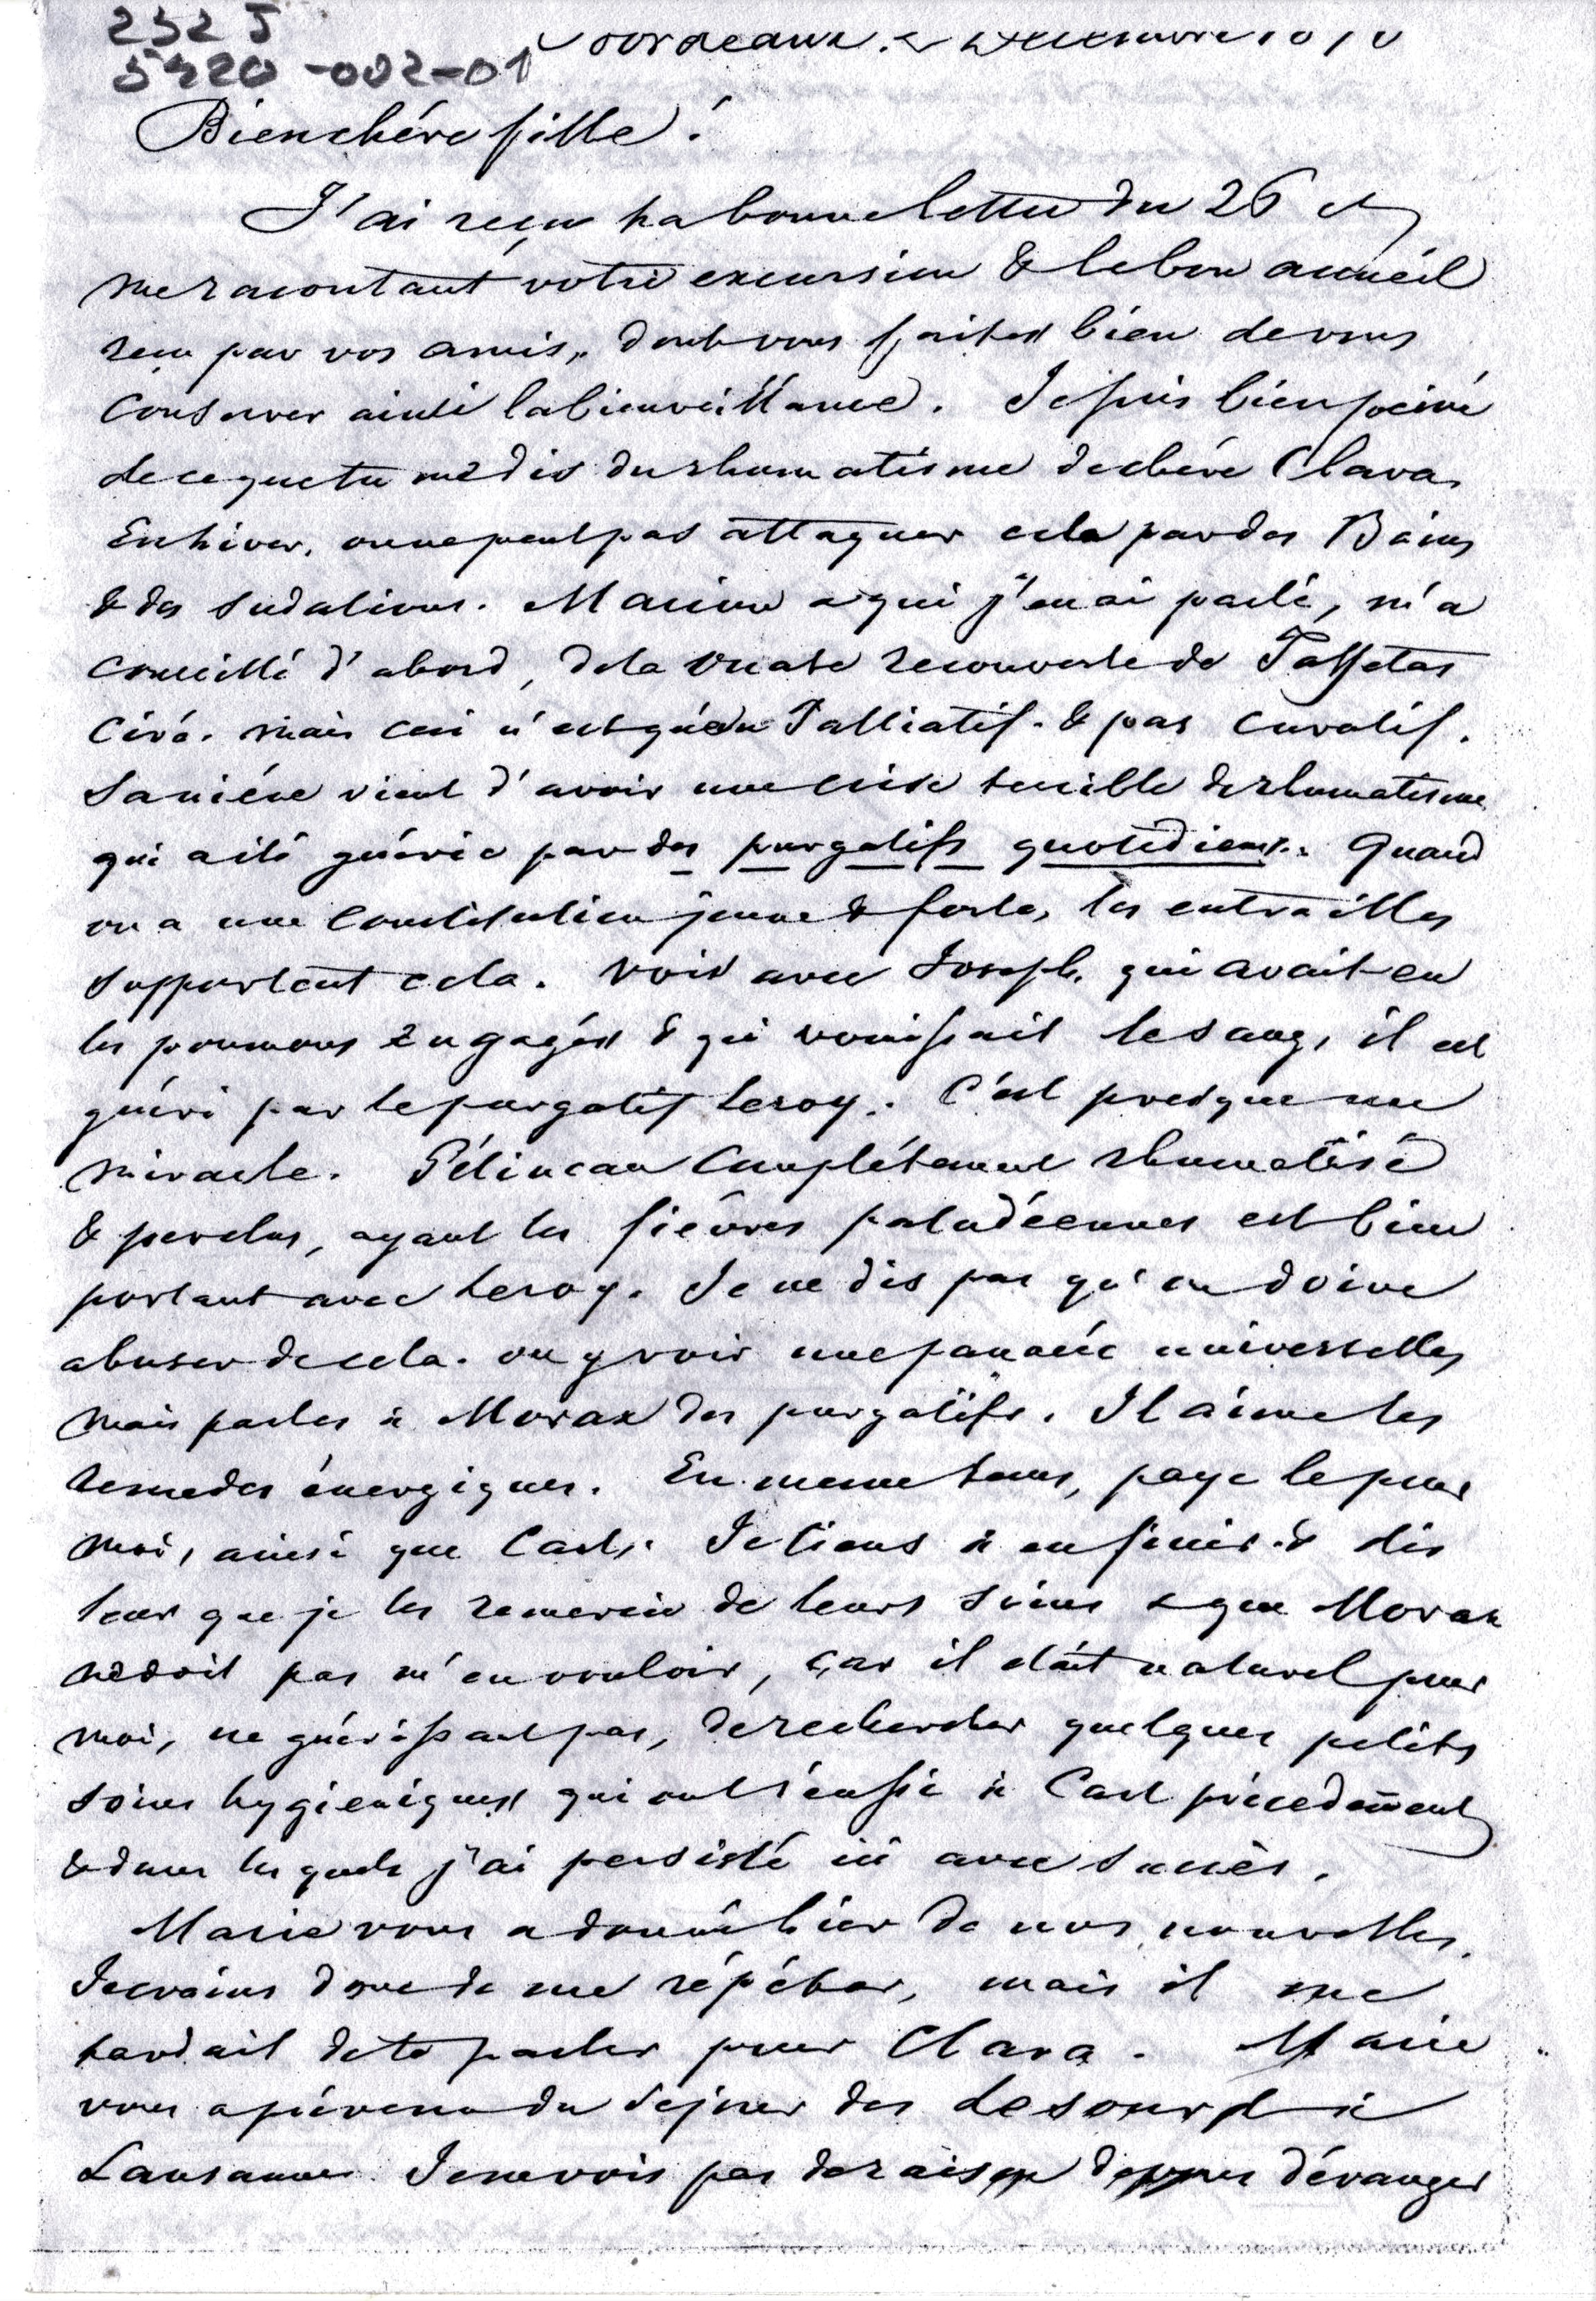 232 J
5420-002-01
Bordeaux. 2 Décembre 18
Bien chére fille!
J'ai reçu ta bonne lettre du 26 ct
me racontant votre excursion & le bon accueil
reçu par vos amis, dont vous faites bien de vous
conserver ainsi la bienveillance. Je suis bien peiné
de ce que tu me dis du rhumatisme de chére Clara.
En hiver, on ne peut pas attaquer cela par des Bains
& des sudations. Marion a qui j'en ai parlé, m'a
conseillé d'abord, de la ouate recouverte de Taffetas
Ciré. mais ceci n'est qu'un Palliatif. & pas curatif.
Sa niéce vient d'avoir une crise terrible de rhumatisme
qui a été guérie par des purgatifs quotidiens. Quand
on a une constitution jeune & forte, les entrailles
supportent cela. Vois avec Joseph. qui avait eu
les poumons engagés & qui vomissait le sang, il est
guéri par le purgatif Leroy. C'est presque un
miracle. Pélineau complétement rhumatisé
& perclus, ayant les fiévres paludéennes est bien
portant avec Leroy. Je ne dis pas qu'on doive
abuser de cela. ou y voir une panacée universelle,
mais parles à Morax des purgatifs. Il aime les
remedes énergiques. En meme tems, paye le pour
moi, ainsi que Carl. Je tiens à en finir & dis
leur que je les remercie de leurs soins & que Morax
ne doit pas m'en vouloir, car il était naturel pour
moi, ne guérissant pas, de rechercher quelques petits
soins hygieniques qui ont réussi à Carl précedemment
& dans les quels j'ai persisté ici avec succès.
Marie vous a donné hier de nos nouvelles.
Je crains donc de me répéter, mais il me
tardait de te parler pour Clara. Marie
vous a prévenu du sejour des Lesourd à
Lausanne. Je ne vois pas de raison de vous déranger